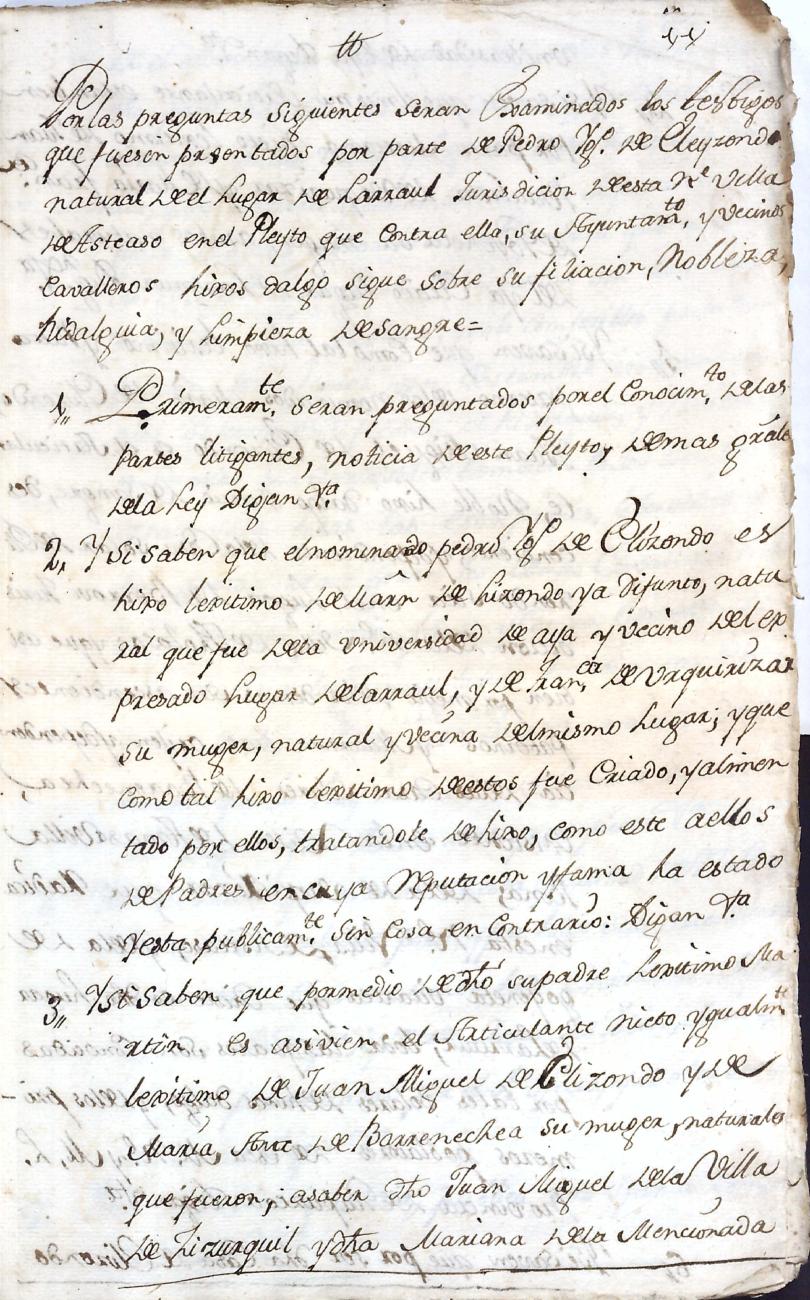 tt 11
Por las preguntas siguientes seran Examinados los testigos
que fuesen presentados por parte de Pedro Ygº. de Eleyzondo
natural de el Lugar de Larraul Jurisdicion de esta Nᵉ Villa
de Asteaso en el Pleyto que contra ella, su Ayuntamᵗᵒ, y vecinos
Cavalleros hixos dalgo sigue sobre su filiacion, Nobleza,
hidalguia, y limpieza de sangre=
1,, Primeramᵗᵉ. seran preguntados por el Conocimᵗᵒ. de las
Partes litigantes, noticia de este Pleyto, demas grāles
de la Ley Digan &ᵃ
2,, Y Si saben que el nominado pedro Ygº de Elizondo es
hixo lexitimo de Marn de Lizondo ya Difunto, natu
ral que fue de la Universidad de aya y vecino del ex
presado Lugar de Larraul, y de Franᶜᵃ de Urquirizar
su muger, natural y vecina del mismo Lugar; y que
como tal hixo lexitimo de estos fue Criado, y alimen
tado por ellos, tratandole de hixo, como este a ellos
de Padres en cuya Reputacion y fama ha estado
Y esta publicamᵗᵉ. sin Cosa en Contrario: Digan &ᵃ
3,, Y si saben que por medio de dho su padre Lexitimo Ma
rtin es asi vien el Articulante nieto ygualmᵗᵉ
lexitimo de Juan Miguel de Elizondo y de
Maria, Ana de Barrenechea su muger, naturales
que fueron, a saber dho Juan Miguel de la Villa
de Zizurquil y dha Mariana de la Mencionada